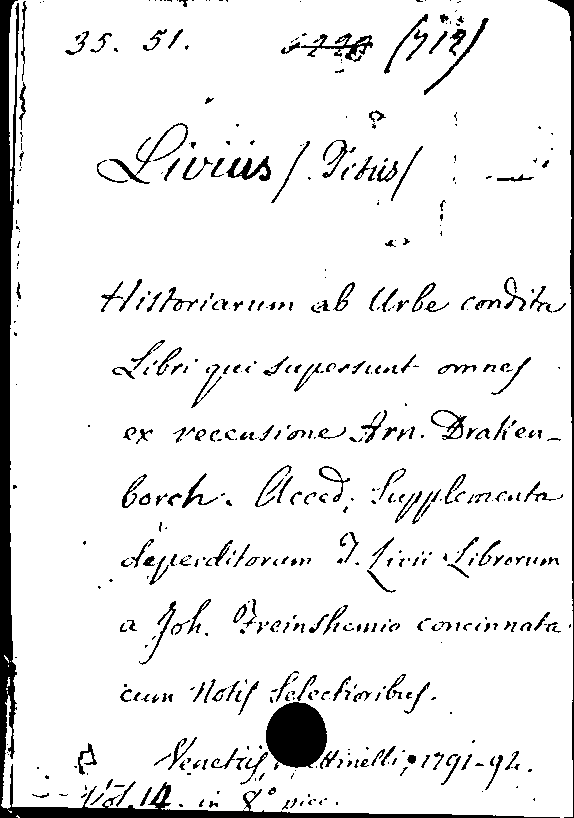 35. 51. (712)
Livius /. Titus /
Historiarum ab Urbe condita
Libri qui supersunt omnes
ex recensione Arn. Draken-
borch. Acced. Supplementa
deperditorum T. Livii Librorum
a Joh. Freinshemio concinnata
cum Notis Selectioribus.
Venetiis, 1791-92.
Vol. 14. in 8° picc.